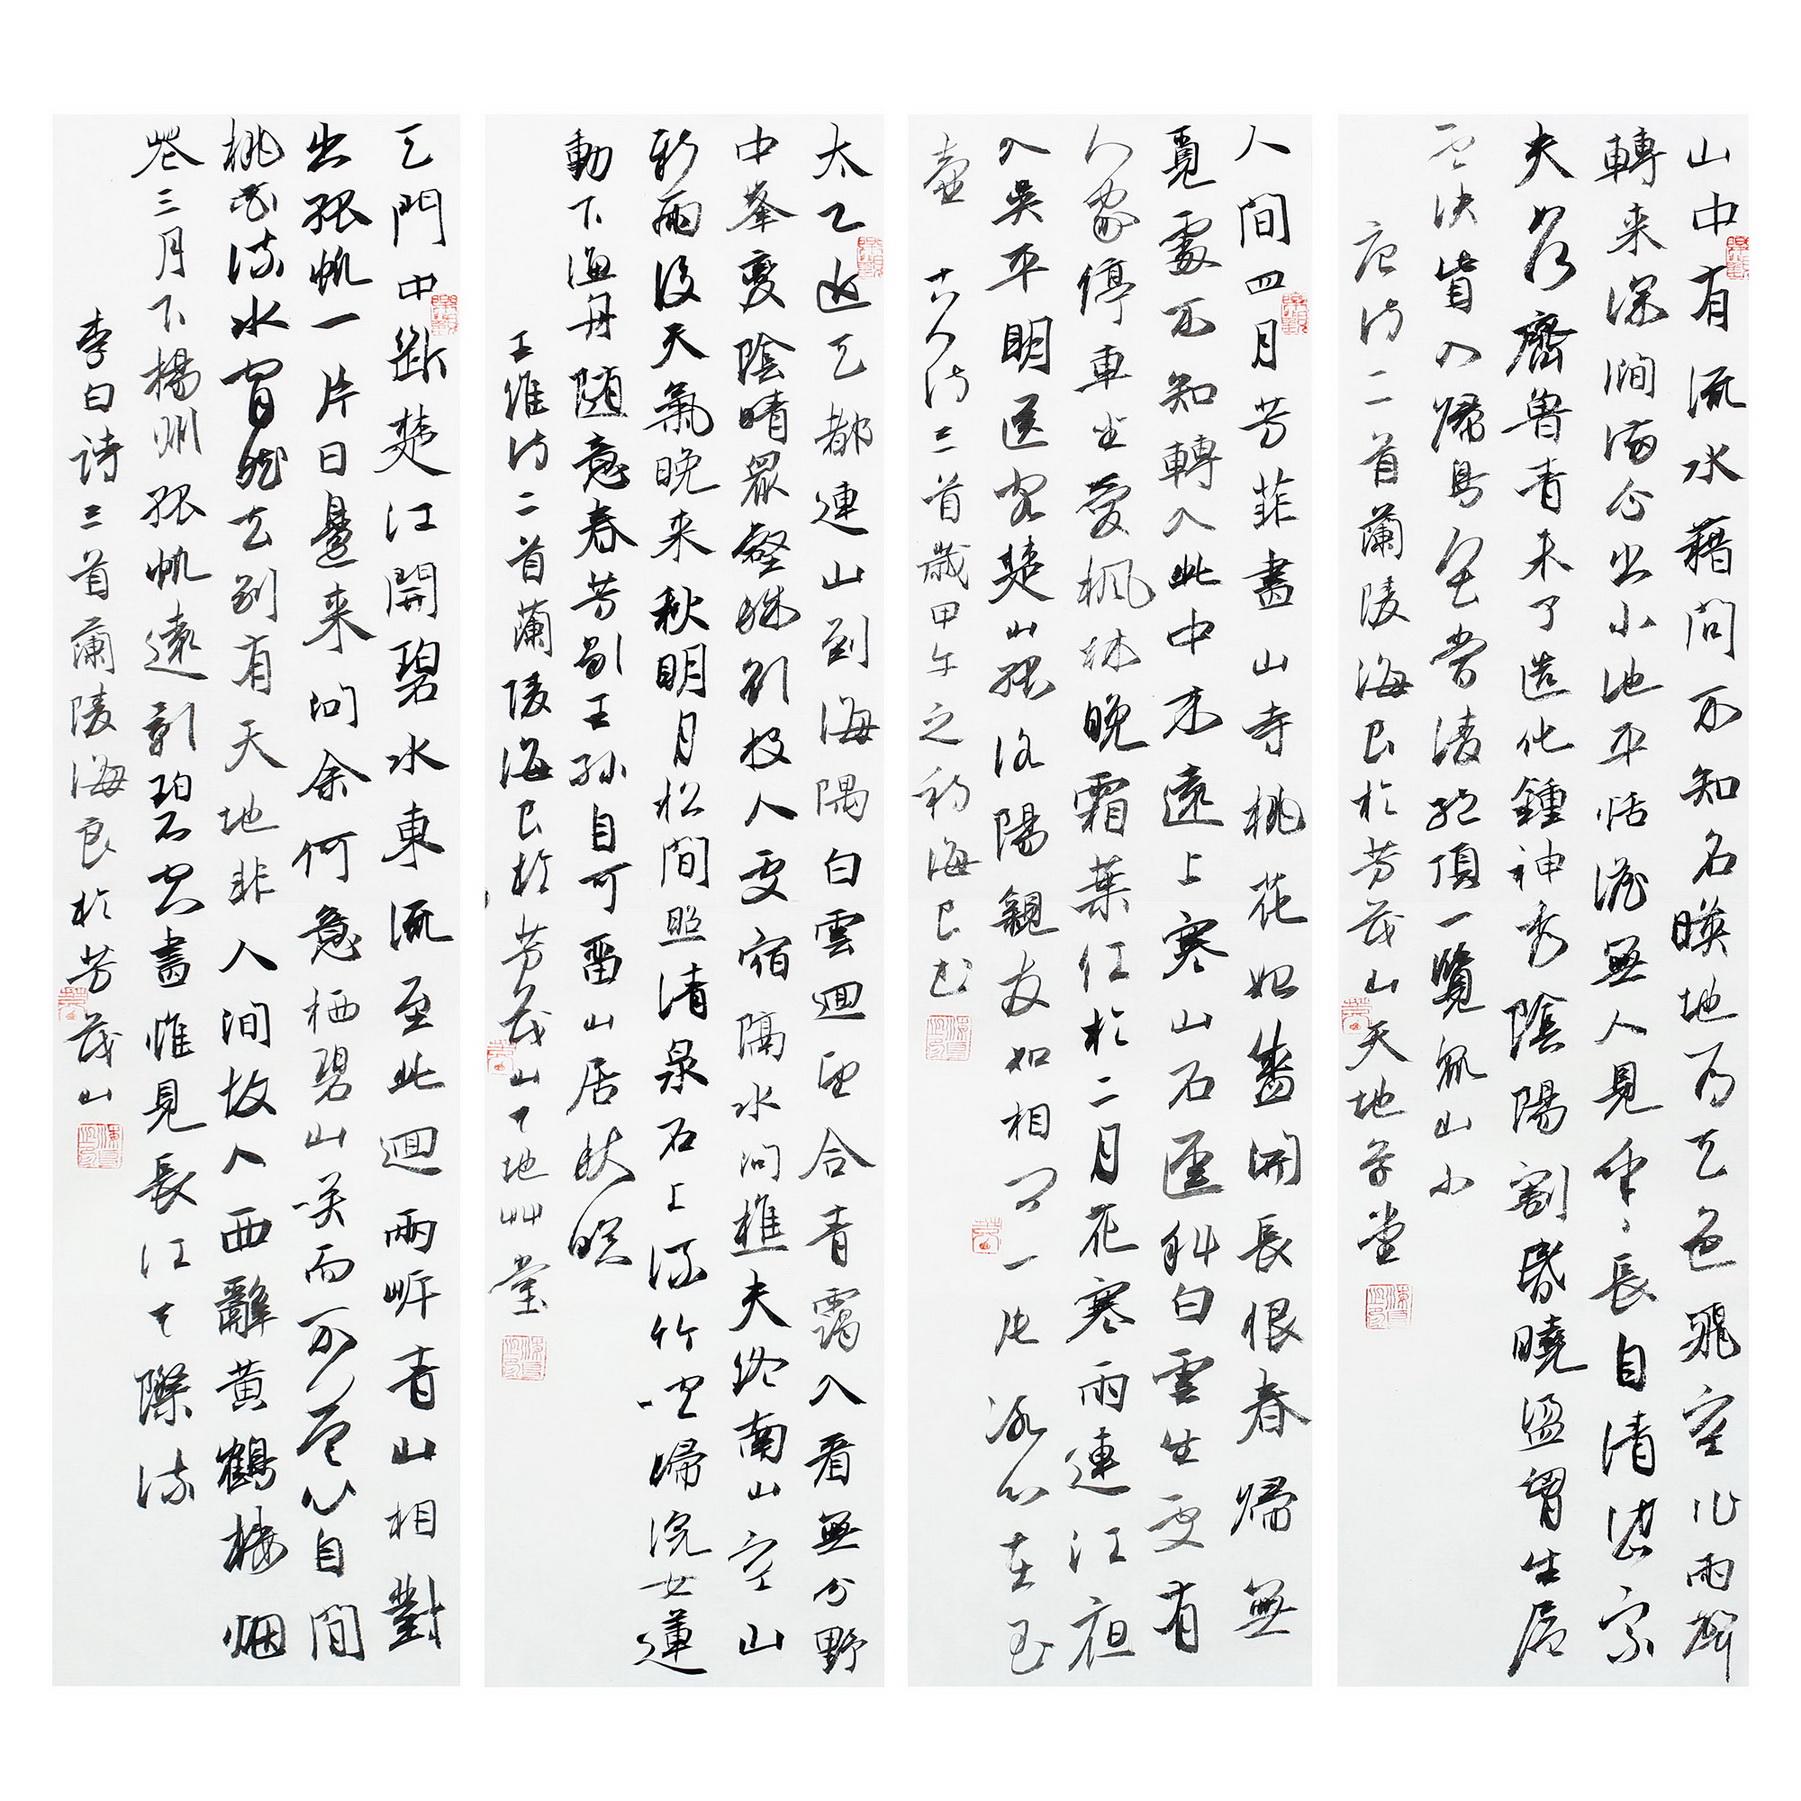 山中有流水藉問不知名暎地為天色飛空作雨聲
轉来深澗滿分出小池平恬澹無人見年〻長自清岱宗
夫如何齊魯青未了造化鍾神秀陰陽割昏曉盪胸生層
雲決眥入歸鳥會當淩絕頂一覽眾山小
唐詩二首蘭陵海良於芳茂山天地草堂
人間四月芳菲盡山寺桃花始盛開長恨春歸無
覓處不知轉入此中来遠上寒山石徑斜白雲生處有
人家停車坐愛楓林晚霜葉紅於二月花寒雨連江夜
入吳平明送客楚山孤洛陽親友如相問一片冰心在玉
壺 古人詩三首歲甲午之初海良書
太乙近天都連山到海隅白雲迴望合青靄入看無分野
中峯變陰晴眾壑殊欲投人處宿隔水問樵夫終南山空山
新雨後天氣晚来秋明月松間照清泉石上流竹喧歸浣女蓮
動下漁舟随意春芳歇王孫自可留山居秋暝
王維詩二首蘭陵海良於芳茂山天地艸堂
天門中斷楚江開碧水東流至此迴兩岸青山相對
出孤帆一片日邊来問余何意栖碧山笑而不答心自閒
桃花流水窅然去別有天地非人間故人西辭黃鶴樓烟
花三月下揚州孤帆遠影碧空盡惟見長江天際流
李白詩三首蘭陵海良於芳茂山